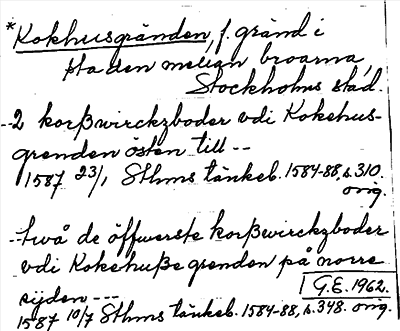 *Kokhusgränden, f. gränd i
staden mellan broarna,
Stockholms stad.
--2 korßwirckzboder vdi Kokehus-
grenden östen till --
1587 23/1 Sthms tänkeb. 1584-88, s. 310.
orig.
-twå de öffwerste korßwirckzboder
vdi Kokehuße grenden på norre
sijden ---
G.E. 1962.
1587 10/7 Sthms tänkeb. 1584-88, s. 348. orig.